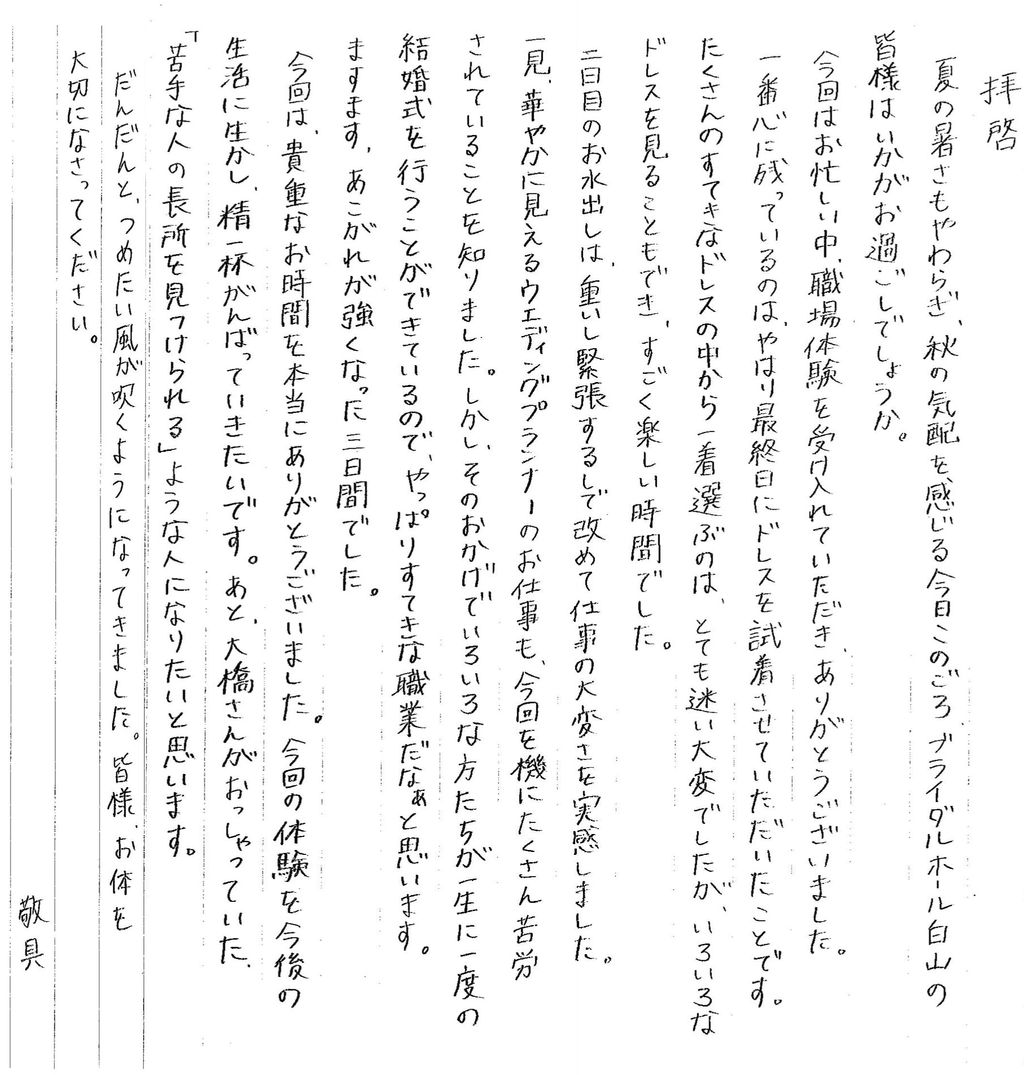 拝啓
夏の暑さもやわらぎ、秋の気配を感じる今日このごろ、ブライダルホール白山の
皆様はいかがお過ごしでしょうか。
今回はお忙しい中、職場体験を受け入れていただき、ありがとうございました。
一番心に残っているのは、やはり最終日にドレスを試着させていただいたことです。
たくさんのすてきなドレスの中から一着選ぶのは、とても迷い大変でしたが、いろいろな
ドレスを見ることもでき、すごく楽しい時間でした。
二日目のお水出しは、重いし緊張するしで改めて仕事の大変さを実感しました。
一見、華やかに見えるウエディングプランナーのお仕事も、今回を機にたくさん苦労
されていることを知りました。しかし、そのおかげでいろいろな方たちが一生に一度の
結婚式を行うことができているので、やっぱりすてきな職業だなぁと思います。
ますます、あこがれが強くなった三日間でした。
今回は、貴重なお時間を本当にありがとうございました。今回の体験を今後の
生活に生かし、精一杯がんばっていきたいです。あと、大橋さんがおっしゃっていた、
「苦手な人の長所を見つけられる」ような人になりたいと思います。
だんだんと、つめたい風が吹くようになってきました。皆様、お体を
大切になさってください。
敬具